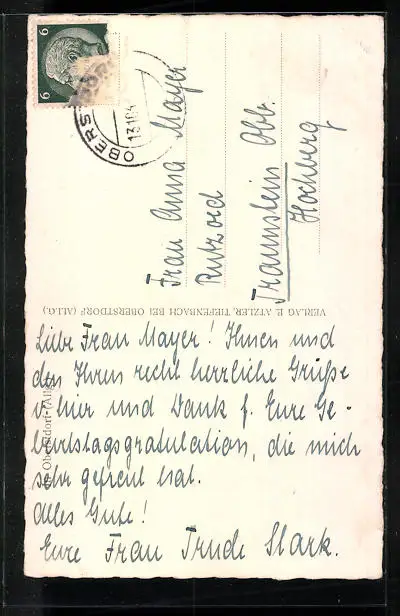 6 6
OBERSTDORF
13.10.4
Frau Anna Mayer
Rutzoed
Traunstein Obb.
Hochberg
VERLAG E. ATZLER, TIEFENBACH BEI OBERSTDORF (ALLG.)
Oberstdorf (Allg.)
Liebe Frau Mayer! Ihnen und
den Ihren recht herzliche Grüße
v. hier und Dank f. Eure Ge-
burtstagsgratulation, die mich
sehr gefreut hat.
Alles Gute!
Eure Frau Trude Stark.